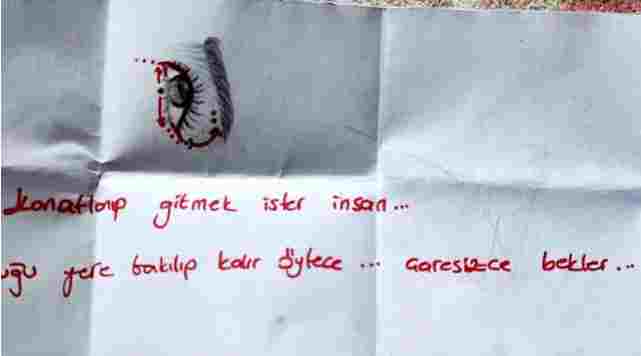 kanatlanıp gitmek ister insan...
uğu yere takılıp kalır öylece ... çaresizce bekler...